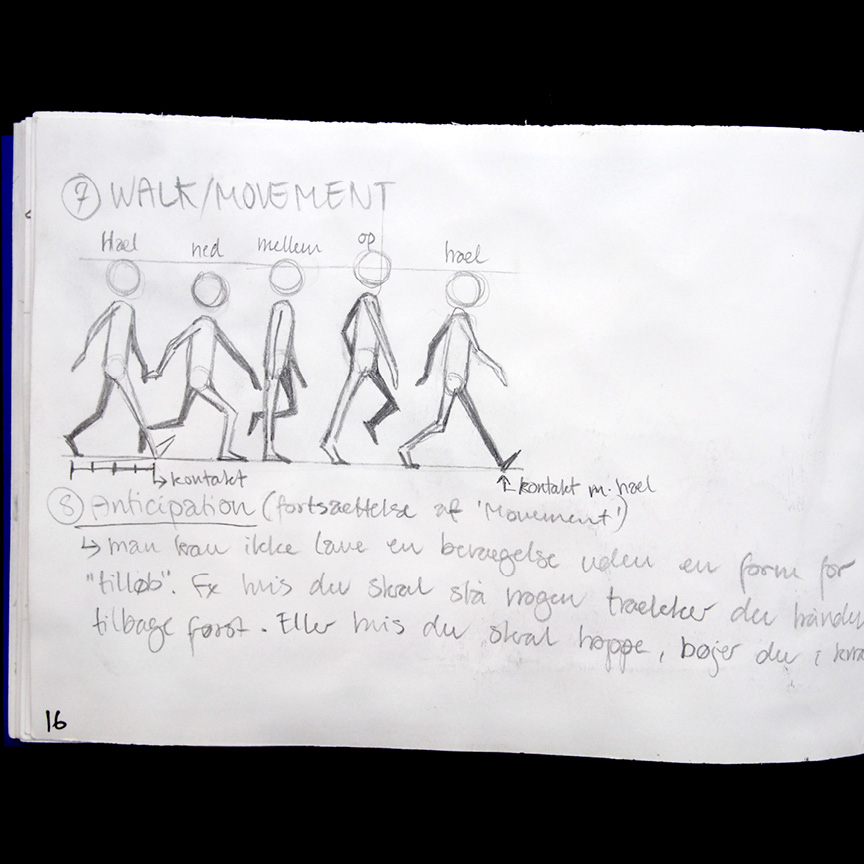 7 WALK/MOVEMENT
Hæl ned mellem op hæl
↳ kontakt
↑ kontakt m. hæl
8 Anticipation (fortsættelse af 'Movement')
↳ man kan ikke lave en bevægelse uden en form for
"tilløb". Fx hvis du skal slå nogen trækker du hånden
tilbage først. Eller hvis du skal hoppe, bøjer du i
16